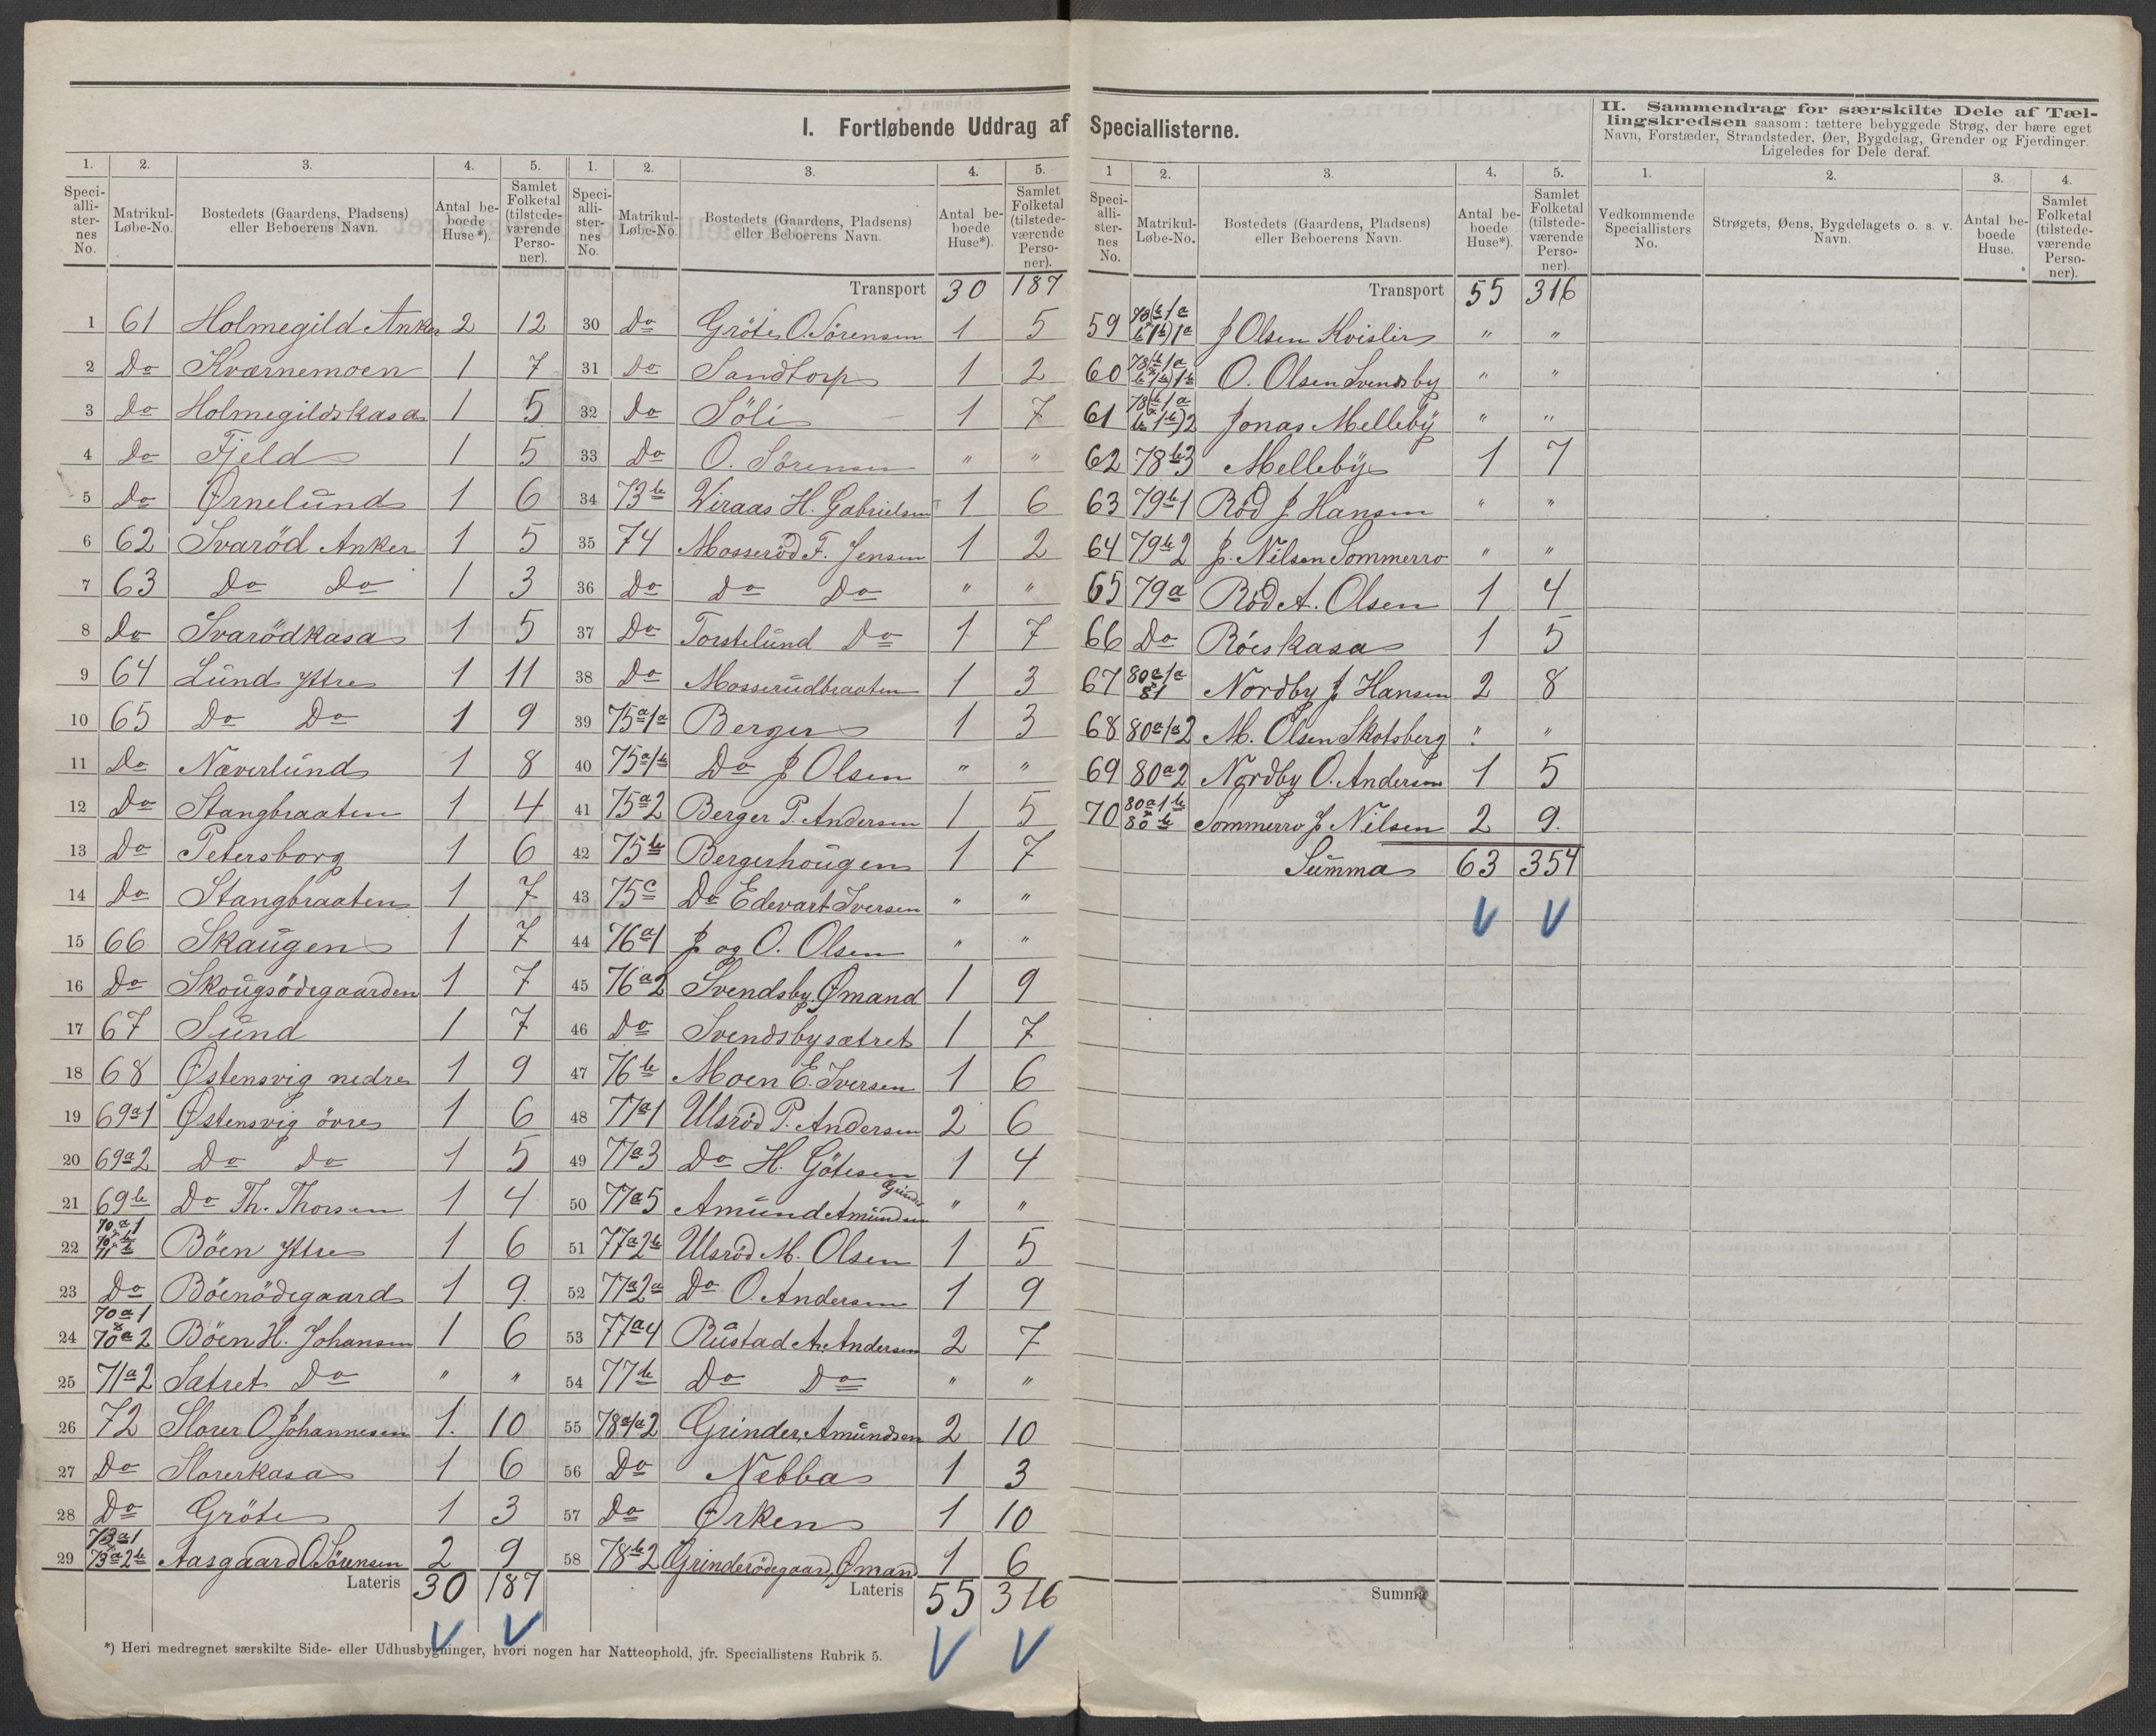 I. Fortløbende Uddrag af Speciallisterne.
1. 2. 3. 4. 5.
Speciallisternes No. Matrikul-Løbe-No. Bostedets (Gaardens, Pladsens) eller Beboerens Navn. Antal beboede Huse*). Samlet Folketal (tilstedeværende Personer).
1 61 Holmegild Anker 2 12
2 Do Kværnemoen 1 7
3 Do Holmegildskasa 1 5
4 Do Fjeld 1 5
5 Do Ørnelund 1 6
6 62 Svaröd Anker 1 5
7 63 Do Do 1 3
8 Do Svarödkasa 1 5
9 64 Lund Yttre 1 11
10 65 Do Do 1 9
11 Do Næverlund 1 8
12 Do Stangbraaten 1 4
13 Do Petersborg 1 6
14 Do Stangbraaten 1 7
15 66 Skaugen 1 7
16 Do Skougsödegaarden 1 7
17 67 Sund 1 7
18 68 Østensvig nedre 1 9
19 69a1 Østensvig övre 1 6
20 69a2 Do Do 1 5
21 69b Do Th. Thorsen 1 4
22 Böen Yttre 1 6
23 Do Böenödegaard 1 9
24 70a1 & 70a2 Böen H. Johansen 1 6
25 71a2 Sætret Do " "
26 72 Slorer O Johannesen 1. 10
27 Do Slorerkasa 1 6
28 Do Gröte 1 3
29 73a1 73a2b Aasgaard O. Sörensen 2 9
Lateris 30 187
*) Heri medregnet særskilte Side- eller Udhusbygninger, hvori nogen har Natteophold, jfr. Speciallistens Rubrik 5.
1. 2. 3. 4. 5.
Speciallisternes No. Matrikul-Løbe-No. Bostedets (Gaardens, Pladsens) eller Beboerens Navn. Antal beboede Huse*). Samlet Folketal (tilstedeværende Personer).
Transport 30 187
30 Do Gröte O. Sörensen 1 5
31 Do Sandtorp 1 2
32 Do Söli 1 7
33 Do O. Sörensen " "
34 73b Viraas H. Gabrielsen 1 6
35 74 Mosseröd F. Jensen 1 2
36 Do Do Do " "
37 Do Torstelund Do 1 7
38 Do Mosserudbraaten 1 3
39 75a1a Berger 1 3
40 75a1b Do J Olsen " "
41 75a2 Berger P. Andersen 1 5
42 75b Bergerhougen 1 7
43 75c Do Edevart Iversen " "
44 76a1 J og O. Olsen " "
45 76a2 Svendsby Ømand 1 9
46 Do Svendsbysætret 1 7
47 76b Moen E. Iversen 1 6
48 77a1 Ulsröd P. Andersen 2 6
49 77a3 Do H. Götesen 1 4
50 77a5 Amund Amundsen Grinder " "
51 77a2b Ulsröd M. Olsen 1 5
52 77a2a Do O. Andersen 1 9
53 77a4 Rustad A. Andersen 2 7
54 77b Do Do " "
55 78a1a2 Grinder, Amundsen 2 10
56 Do Nebba 1 3
57 Do Ørken 1 10
58 78b2 Grinderödegaard, Øman 1 6
Lateris 55 316
1 2. 3. 4. 5.
Speciallisternes No. Matrikul-Løbe-No. Bostedets (Gaardens, Pladsens) eller Beboerens Navn. Antal beboede Huse*). Samlet Folketal (tilstedeværende Personer).
Transport 55 316
59 J Olsen Kvisler " "
60 O. Olsen Svendsby " "
61 Jonas Melleby " "
62 78b3 Melleby 1 7
63 79b1 Röd J Hansen " "
64 79b2 J. Nilsen Sommerro " "
65 79a Röd A. Olsen 1 4
66 Do Röeskasa 1 5
67 80a1a 81 Nordby J Hansen 2 8
68 80a1a2 M. Olsen Skotsberg " "
69 80a2 Nordby O. Andersen 1 5
70 80a1b 80b Sommerro J Nilsen 2 9.
Summa 63 354
Summa
II. Sammendrag for særskilte Dele af Tællingskredsen saasom: tættere bebyggede Strøg, der bære eget Navn, Forstæder, Strandsteder, Øer, Bygdelag, Grender og Fjerdinger. Ligeledes for Dele deraf.
1. 2. 3. 4.
Vedkommende Speciallisters No. Strøgets, Øens, Bygdelagets o. s. v. Navn. Antal beboede Huse. Samlet Folketal (tilstedeværende Personer).